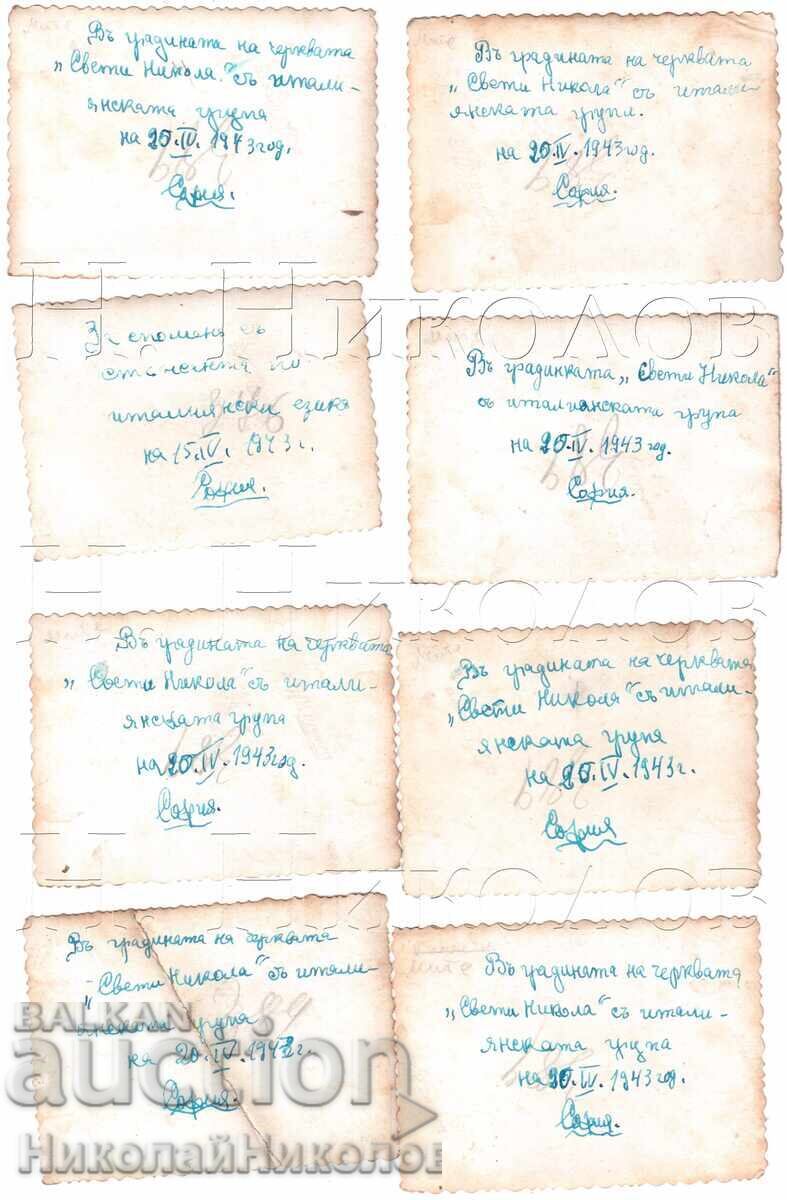 Въ градината на черквата
„Свети Никола" съ итали-
янската група
на 20.IV.1943 год.
София.
Въ градината на черквата
„Свети Никола" съ итали-
янската група.
на 20.IV.1943 год.
София.
За споменъ съ
по
италиянски езикъ
на 15.IV.1943 г.
София.
Въ градинката „Свети Никола"
съ италианската група
на 20.IV.1943 год.
София.
Въ градината на черквата
„Свети Никола" съ итали-
янската група
на 20.IV.1943 год.
София.
Въ градината на черквата
„Свети Никола" съ итали-
янската група
на 20.IV.1943 г.
София
Въ градината на черквата
„Свети Никола" съ итали-
янската група
на 20.IV.1943 г.
София.
Въ градината на черквата
„Свети Никола" съ итали-
янската група
на 20.IV.1943 год.
София.
Н. Николов
Н. Николов
Н. Николов
BALKAN
auction
НиколайНиколов